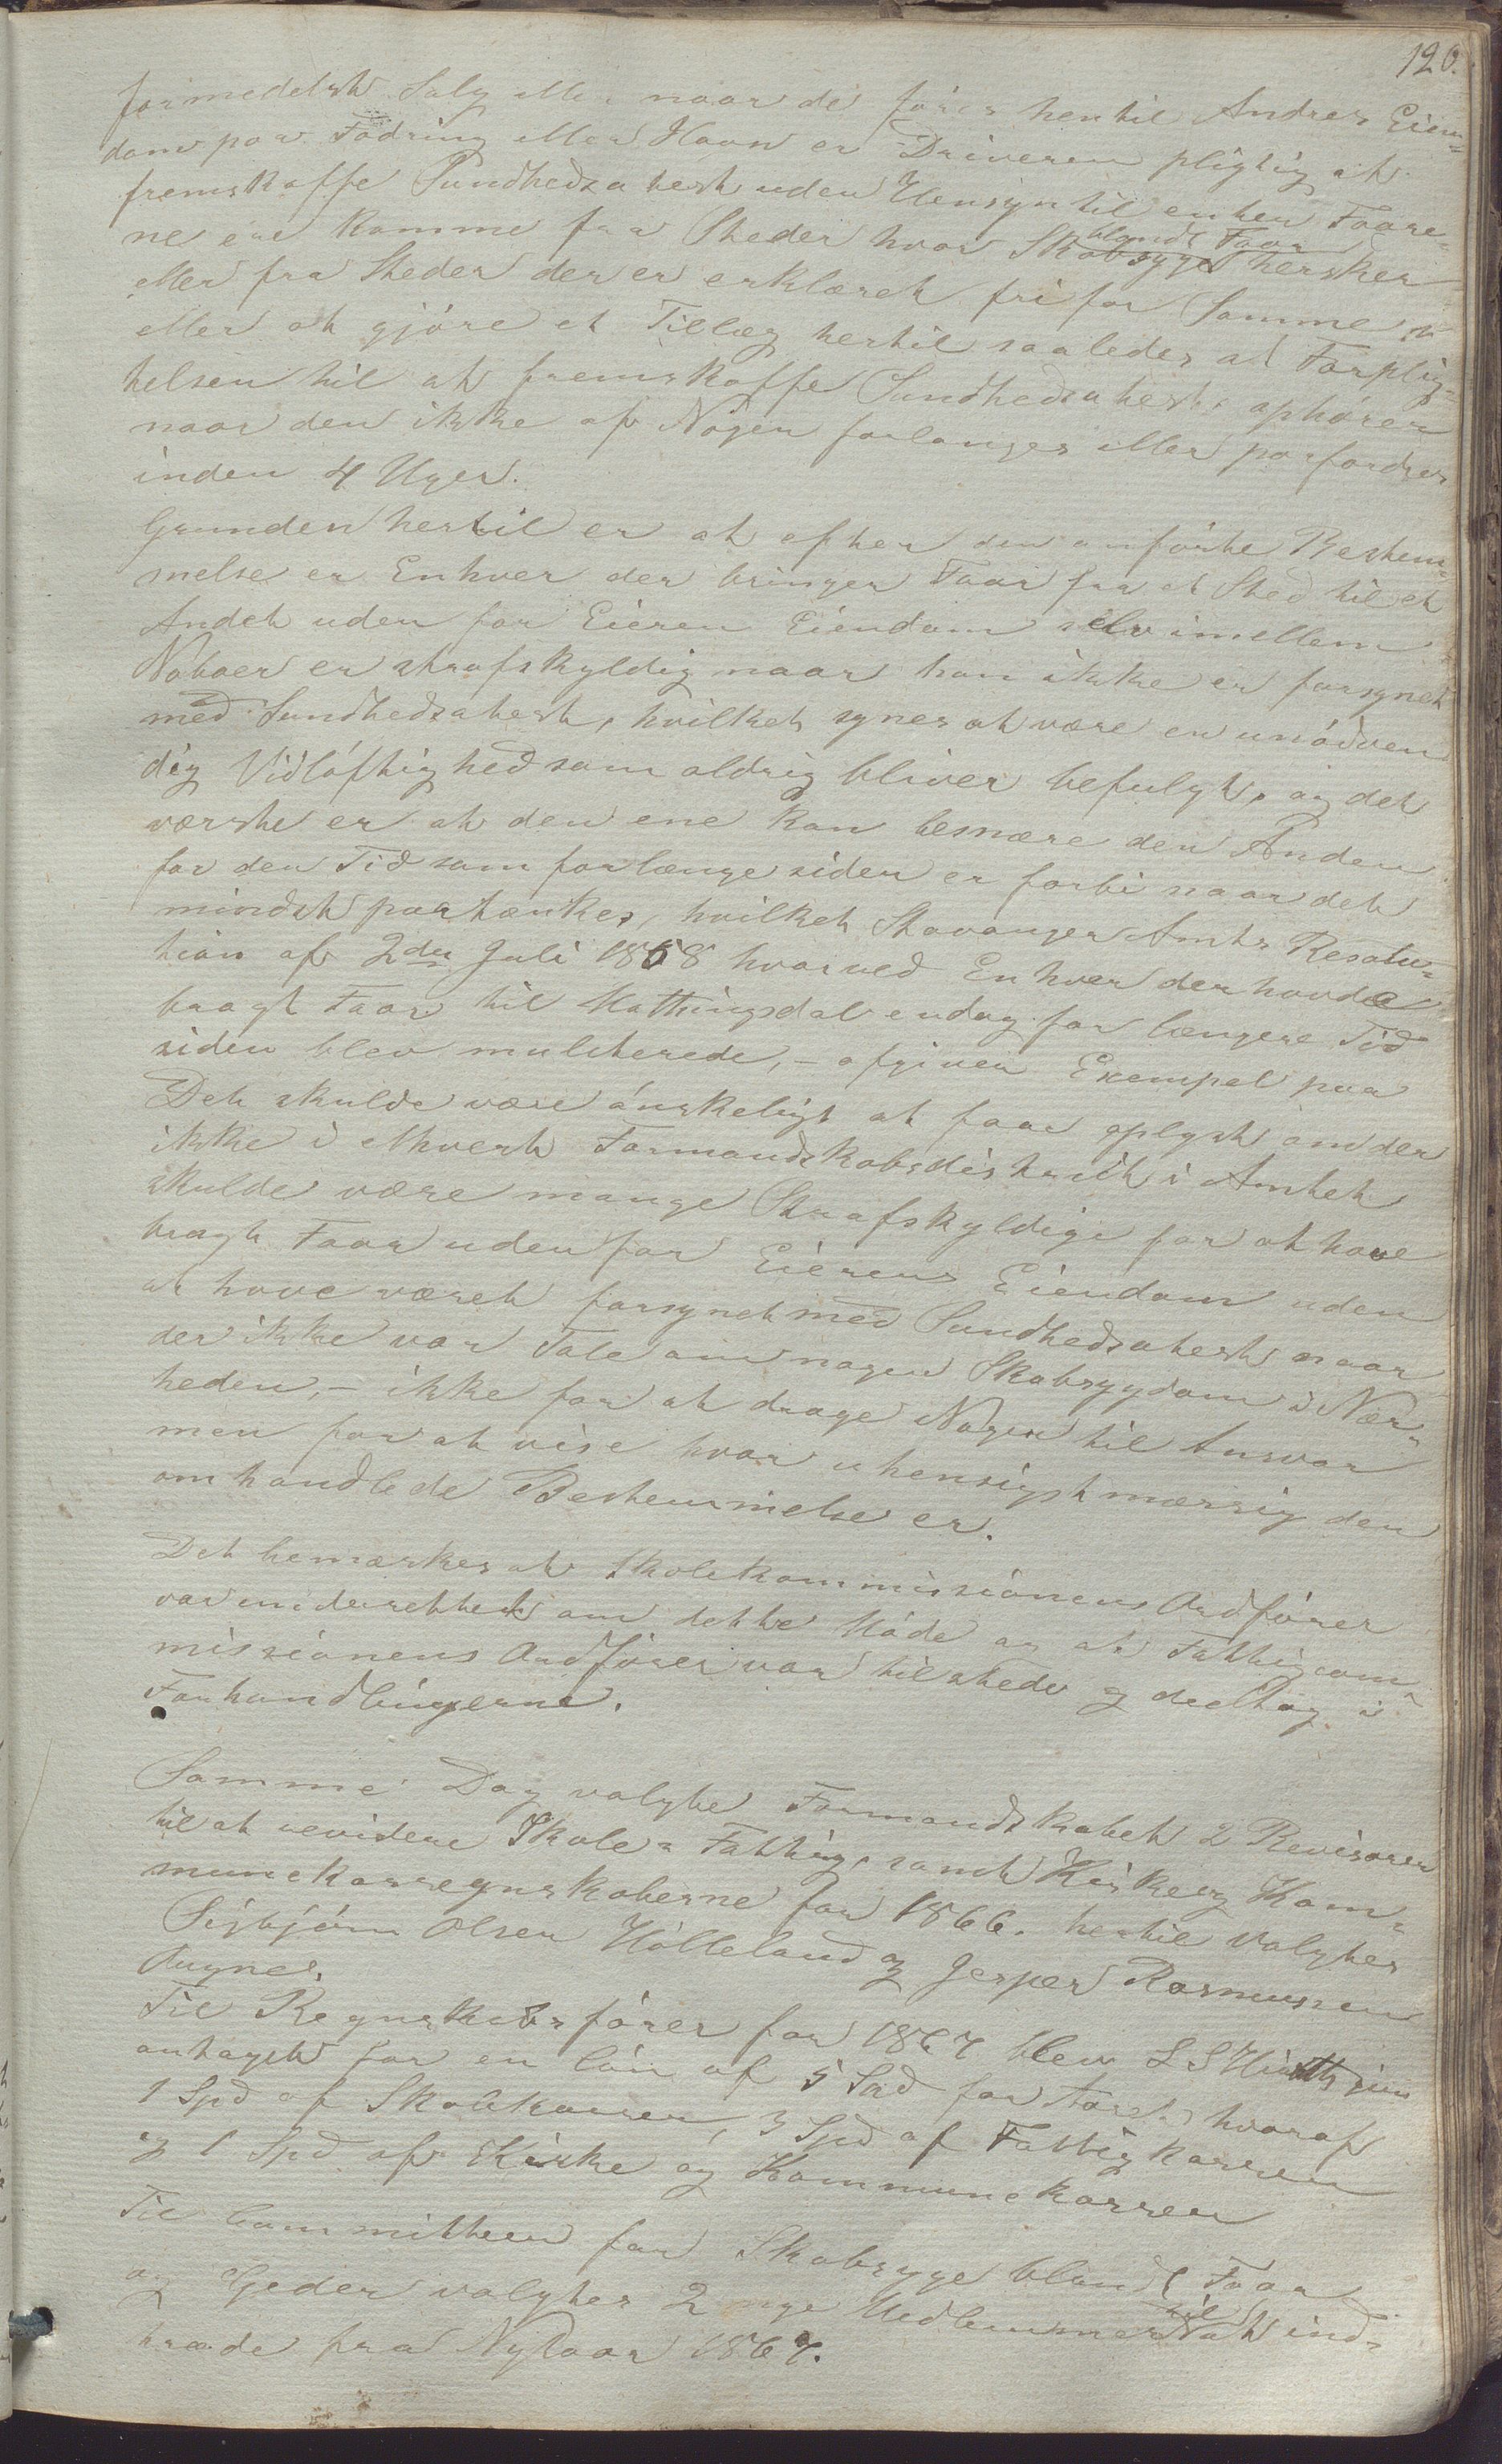 120.
formedelst Salg eller naar de føres hentil Andres Eien-
dom paa Fodring eller Havn er Driveren pligtig at
fremskaffe Sundhedsatest uden Hensyn til enten Faare-
ne ere komme fra Steder hvor Skabsyge blandt Faar hersker
eller fra Steder der er erklæret fri for Samme,
eller at gjøre et Tillæg hertil saaledes at Forplig-
telsen til at fremskaffe Sundhedsatest, ophører
naar den ikke af Nogen forlanges eller paafordres
inden 4 Uger.
Grunden hertil er at efter den anførte Bestem-
melse er Enhver der bringer Faar fra et Sted til et
Andet uden for Eieren Eiendom selv imellem
Naboer er strafskyldig naar han ikke er forsynet
med Sundhedsatest, hvilket synes at være en unødven
dig Vidløftighed som aldrig bliver befulgt, og det
værste er at den ene kan besnære den Anden
for den Tid som for længe siden er forbi naar det
mindst paatænkes, hvilket Stavanger Amts Resolu-
tion af 2den Juli 1868 hvorved Enhver der havde
bragt Faar til Mattingsdal endog for længere Tid
siden blev mulkterede, - afgiver Exempel paa
Det skulde være ønskeligt at faae oplyst om der
ikke i ethvert Formandskabsdistrikt i Amtet
skulde være mange Strafskyldige for at have
bragt Faar uden for Eierens Eiendom uden
at have været forsynet med Sundhedsatest naar
der ikke var Tale om nogen Skabsygdom i Nær-
heden, - ikke for at drage Nogen til Ansvar
men for at vise hvor uhensigtsmæssig den
omhandlede Bestemmelse er.
Det bemærkes at Skolekommissionens Ordfører
var underrettet om dette Møde og at Fattigcom-
missionens Ordfører var tilstede og deeltog i
Forhandlingerne.
Samme Dag valgte Formandskabet 2 Revisorer
til at revidere Skole- Fattig- samt Kirke og Kom-
munekasseregnskaberne for 1866. hertil valgtes
Sigbjørn Olsen Hølleland og Jesper Rasmussen
Augnes.
Til Regnskabsfører for 1867 blev L S
antaget for en løn af 5 Spd for Aaret, hvoraf
1 Spd af Skolekassen, 3 Spd af Fattigkassen
og 1 Spd af Kirke og Kommunekassen
Til Committeen for Skabsyge blandt Faar
og Geder valgtes 2 nye Medlemmer til at ind-
træde fra Nytaar 1867.